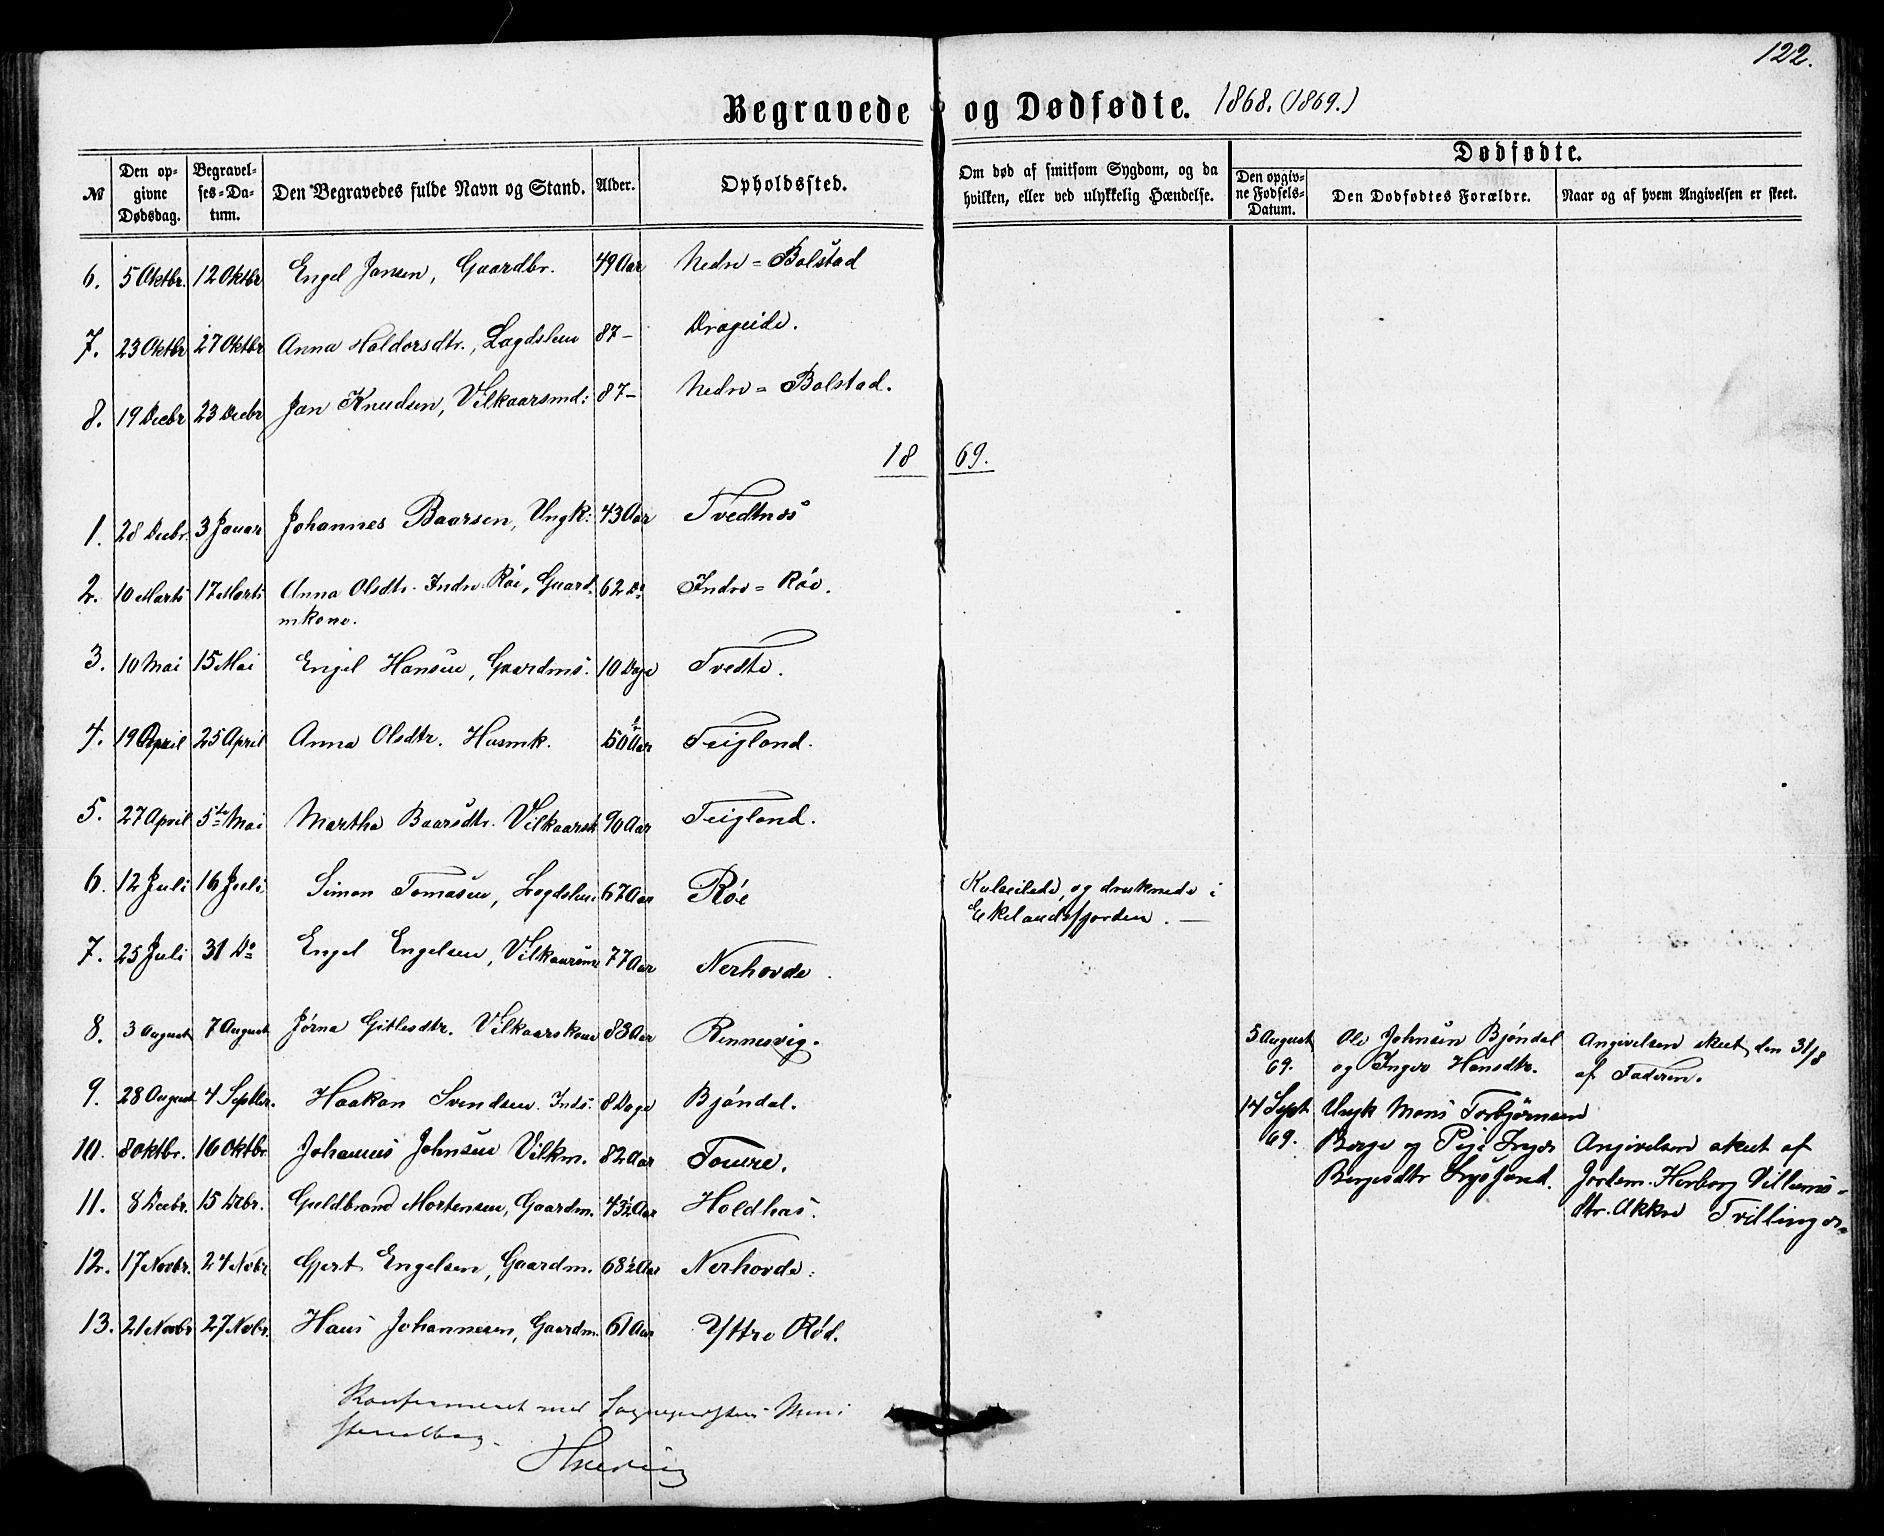 122.
Begravede og Dødfødte. 1868. (1869.)
№ Den opgivne Dødsdag. Begravelses-Datum. Den Begravedes fulde Navn og Stand. Alder. Opholdssted. Om død af smitsom Sygdom, og da hvilken, eller ved ulykkelig Hændelse. Dødfødte. Den opgivne Fødsels-Datum. Den Dødfødtes Forældre. Naar og af hvem Angivelsen er skeet.
6. 5 Oktbr. 12 Oktbr Engel Jansen, Gaardbr. 49 Aar Nedre = Bolstad
7. 23 Oktbr 27 Oktbr Anna Haldorsdtr., Lægdslem 87 - Drageide.
8. 19 Decbr 23 Decbr Jan Knudsen, Vilkaarsmd: 87 - Nedre = Bolstad.
1869.
1. 28 Decbr. 3 Januar Johannes Baarsen, Ungk: 43 Aar Tvedtnes
2. 10 Marts 17 Marts Anna Olsdtr. Indre Røe, Gaard-
mkone. 62 Do Indre = Røe.
3. 10 Mai 15 Mai Engel Hansen, Gaardms. 10 Dage Tvedte.
4. 19 April 25 April Anna Olsdtr. Husmk. 50 1/2 Aar Teigland.
5. 27 April 5te Mai Martha Baarsdtr. Vilkaarsk 90 Aar Teigland.
6. 12 Juli 16 Juli Simon Tomasen, Lægdslem 67 Aar Røe Kulseilede, og druknede i
Ekelandsfjorden. —
7. 25 Juli 31 Do Engel Engelsen, Vilkaarsm 77 Aar Nerhovde.
8. 3 August 7 August Jørna Gitlesdtr. Vilkaarskone 83 Aar Rennesvig. 5 August Ole Johnsen Bjøndal Angivelsen skeet den 31/8
69. og Inger Hansdtr. af Faderen.
9. 28 August 4 Septbr. Haakon Svendsen Inds. 8 Dage Bjøndal. 14 Sept Ungk Mons Torbjørnsen
10. 8 Oktbr. 16 Oktbr Johannes Johnsen Vilkm. 82 Aar Tomre. 69. Berge og Pige Inger Angivelsen skeet af
Bergesdtr Lysfjord. Jordem. Herborg Villums-
11. 8 Decbr. 15 Debr. Guldbrand Mortensen, Gaardm. 43½ Aar Holdhus. dtr. Akkre Tvillinger
12. 17 Novbr. 24 Novbr Gjert Engelsen, Gaardm. 68½ Aar Nerhovde.
13. 21 Novbr 27 Nobr. Hans Johannesen, Gaardm. 61 Aar Yttre Rød.
Konfereret med Sognepræstens Mini
sterialbog.